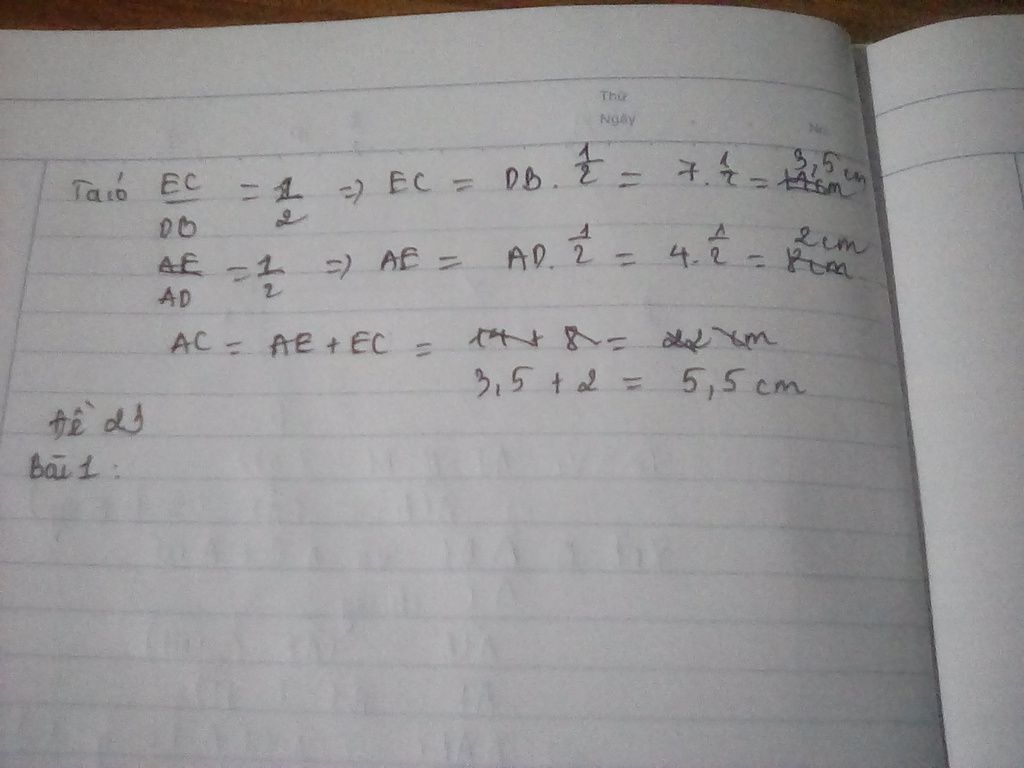 Thứ
Ngày
No
Ta có EC/DB = 1/2 => EC = DB . 1/2 = 7 . 1/2 = 3,5 cm
AE/AD = 1/2 => AE = AD . 1/2 = 4 . 1/2 = 2 cm
AC = AE + EC = 14 + 8 = 22 cm
3,5 + 2 = 5,5 cm
Đề 23
Bài 1 :